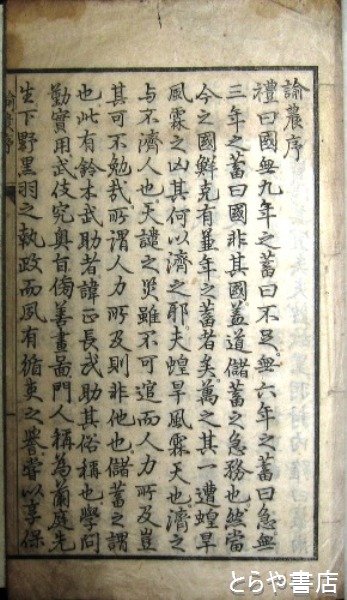 諭農序
禮曰國無九年之蓄曰不足無六年之蓄曰急無
三年之蓄曰國非其國蓋道儲蓄之急務也然當
今之國鮮克有並年之蓄者矣萬之其一遭蝗旱
風霖之凶其何以濟之耶夫蝗旱風霖天也濟之
与不濟人也天譴之災雖不可逭而人力所及豈
其可不勉哉所謂人力所及則非他也儲蓄之謂
也此有鈴木武助者諱正長武助其俗稱也學問
勤實用武伎究奥自備善畫啚門人稱為蘭庭先
生下野黒羽之執政而夙有循吏之譽嘗以享保
諭農序
とらや書店